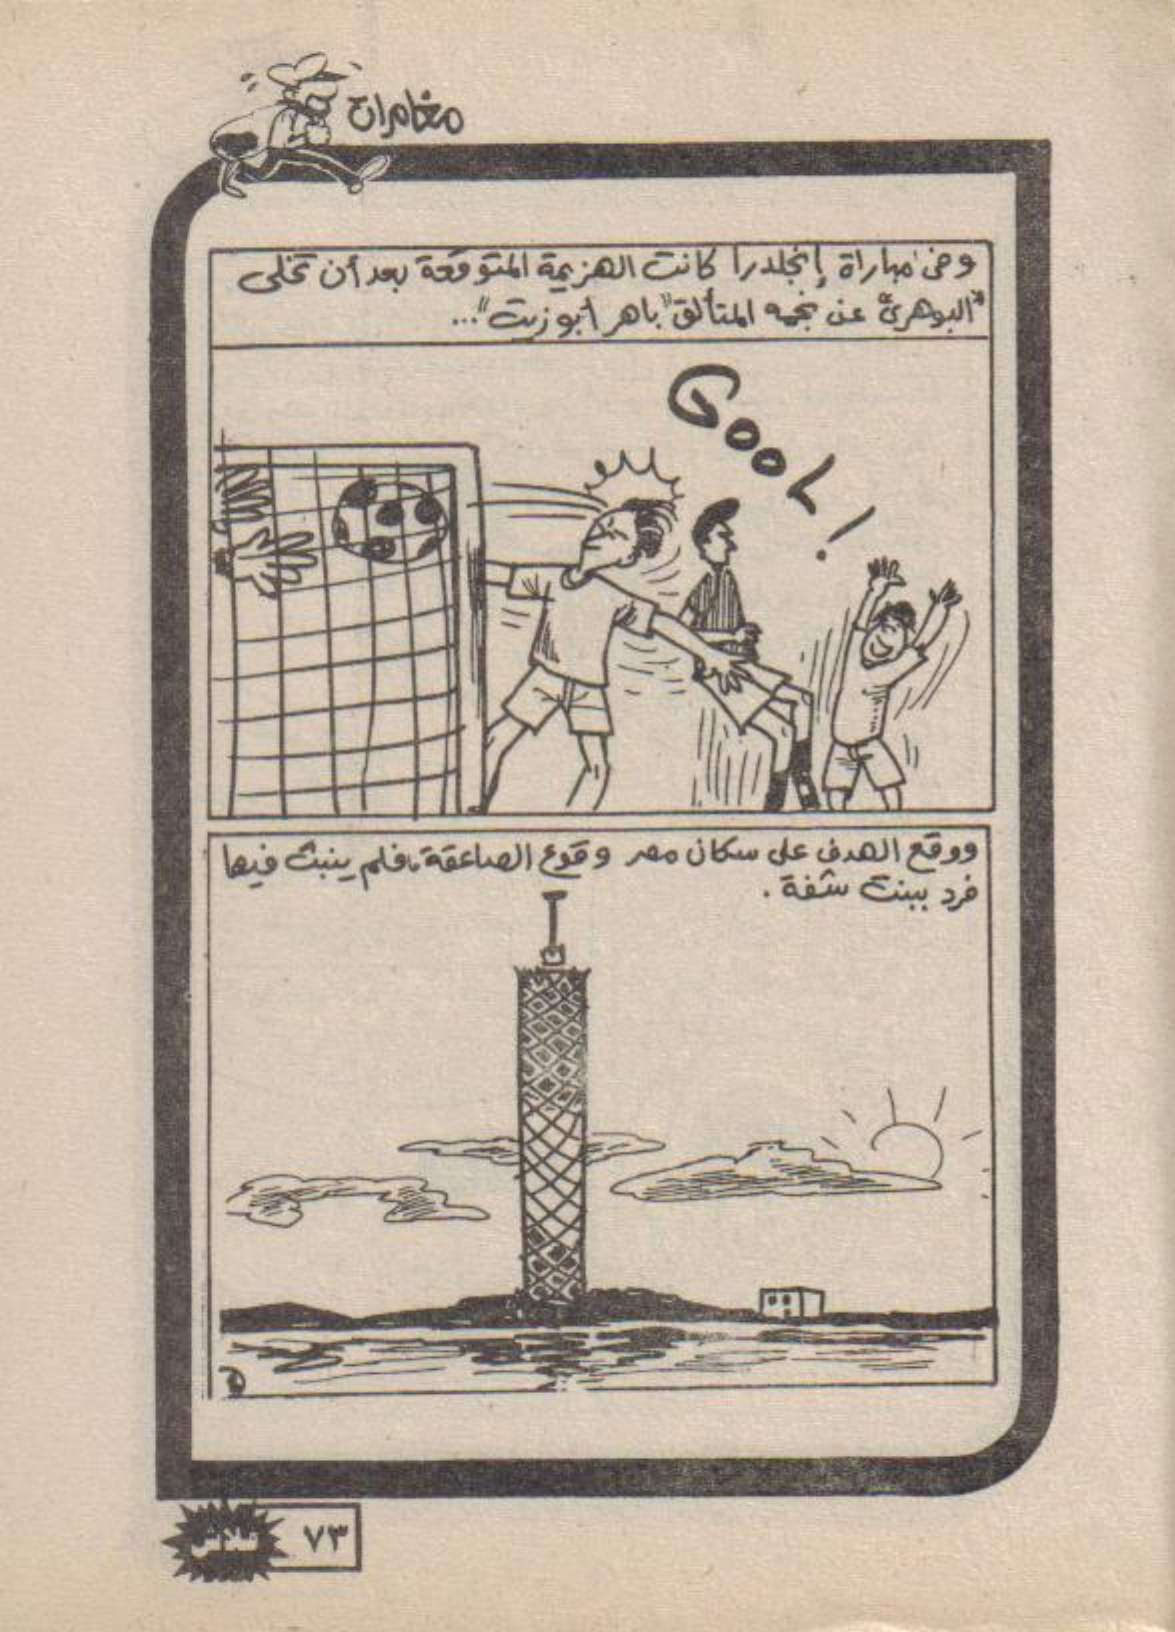 مغامرات
وفى مباراة إنجلدرا كانت الهزيمة المتوقعة بعد أن تخلى
"البوهرى" عن نجمه المتألق "باهر أبو زيت"...
GOOL!
ووقع الهدف على سكان مصر وقوع الصاعقة، فلم ينبث فيها
فرد ببنت شفة.
فلاش
٧٣